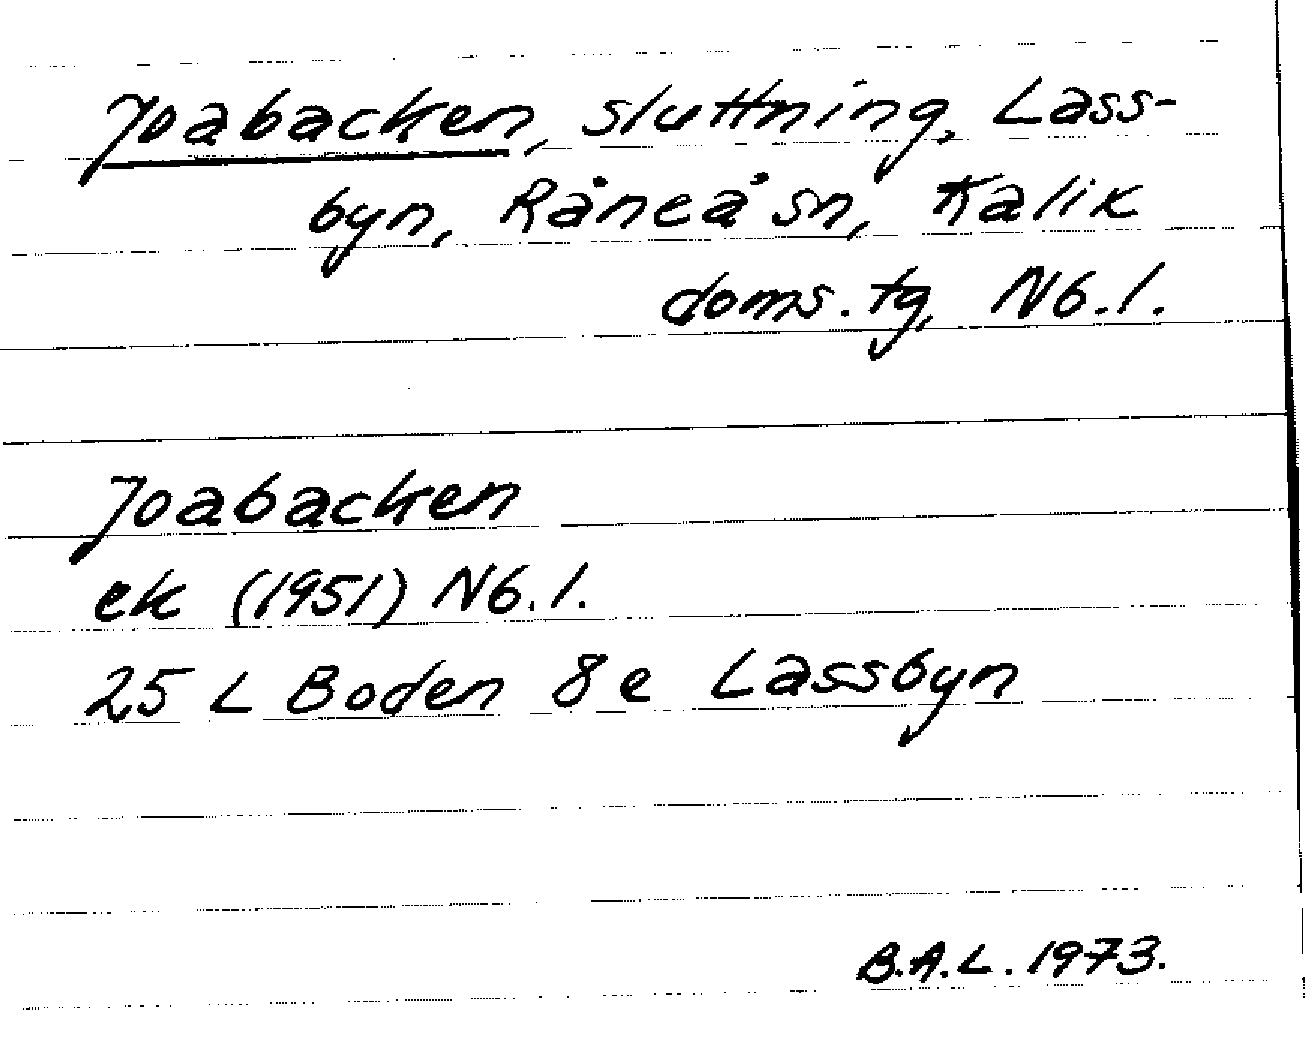 Joabacken, sluttning, Lass-
byn, Råneå sn, Kalix
doms.tg, Nb.l.
Joabacken
ek (1951) Nb.l.
25 L Boden 8e Lassbyn
B.A.L. 1973.